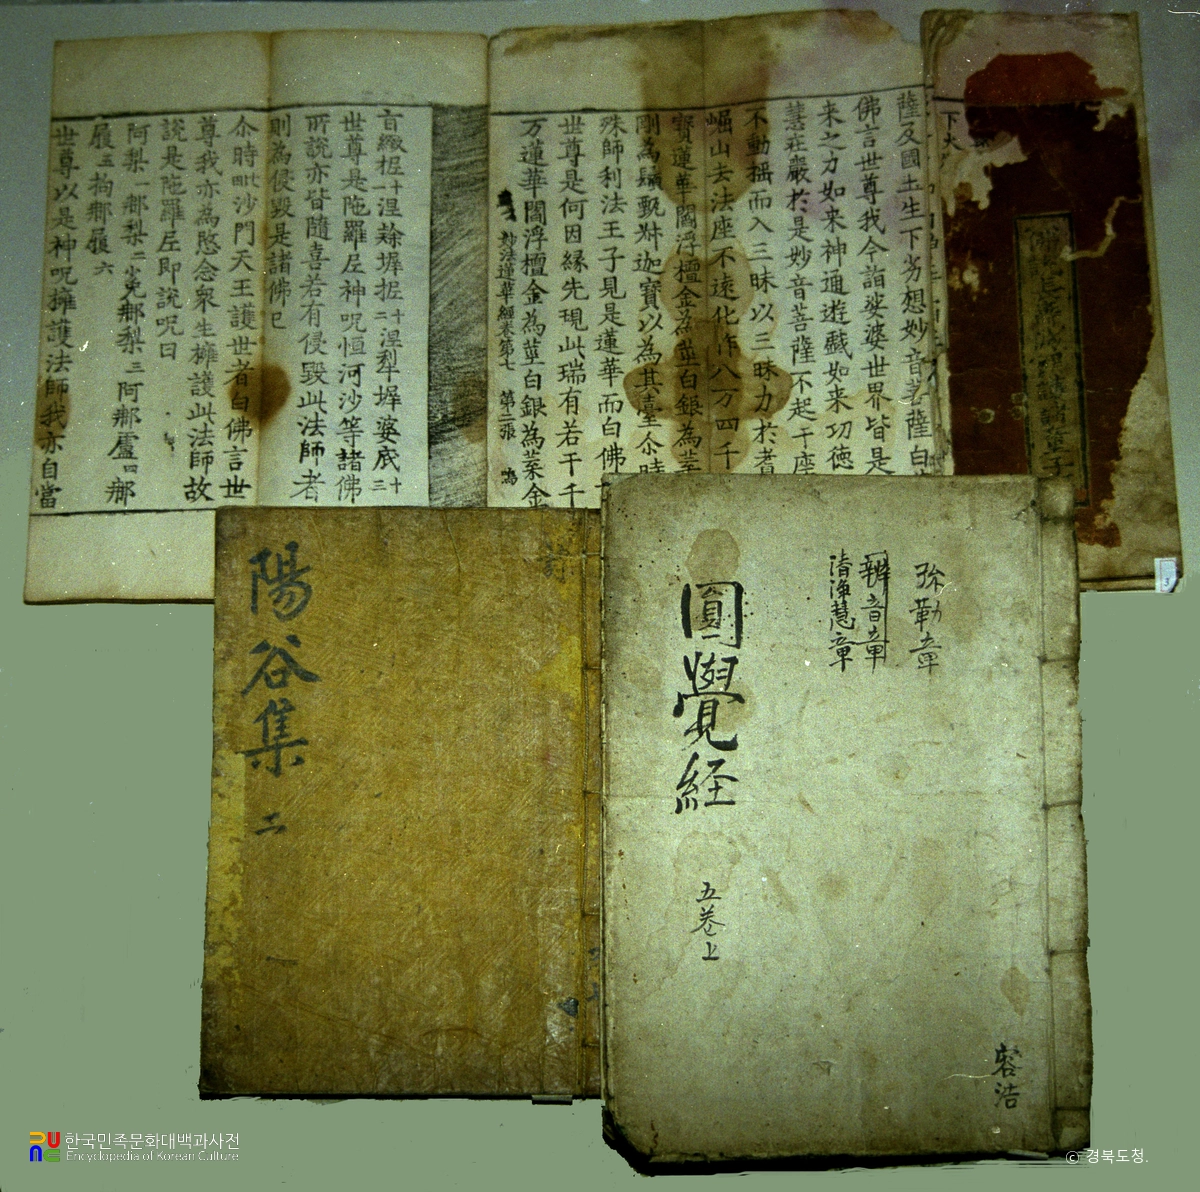 薩及國土生下劣想妙音菩薩白
佛言世尊我今詣娑婆世界皆是
來之力如來神通遊戲如來功德
慧莊嚴於是妙音菩薩不起于座
不動搖而入三昧以三昧力於耆
崛山去法座不遠化作八万四千
寶蓮華閻浮檀金為莖白銀為葉
剛為鬚甄叔迦寶以為其臺尒時
殊師利法王子見是蓮華而白佛
世尊是何因緣先現此瑞有若干千
万蓮華閻浮檀金為莖白銀為葉金
妙法蓮華經卷第七 第三張
盲緻柅十涅隸墀柅十二涅犁墀婆底十三
世尊是陁羅尼神呪恒河沙等諸佛
所說亦皆隨喜若有侵毀此法師者
則為侵毀是諸佛已
尒時毗沙門天王護世者白佛言世
尊我亦為愍念衆生擁護此法師故
說是陁羅尼即說呪曰
阿梨一郍梨二㝹郍梨三阿郍盧四郍
履五拘郍履六
世尊以是神呪擁護法師我亦自當
下大
陽谷集 二
弥勒章
辨音章
清淨慧章
圓覺経
五卷上
한국민족문화대백과사전
Encyclopedia of Korean Culture
© 경북도청.
3